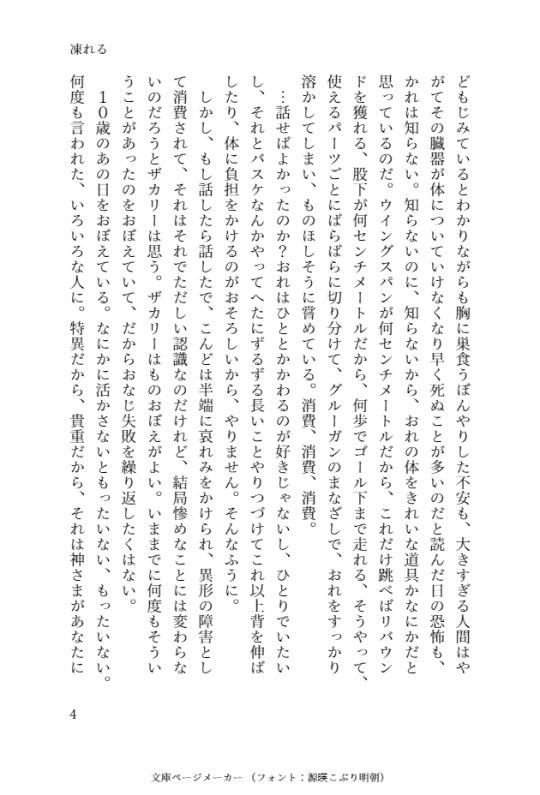 凍れる
どもじみているとわかりながらも胸に巣食うぼんやりした不安も、大きすぎる人間はや
がてその臓器が体についていけなくなり早く死ぬことが多いのだと読んだ日の恐怖も、
かれは知らない。知らないのに、知らないから、おれの体をきれいな道具かなにかだと
思っているのだ。ウイングスパンが何センチメートルだから、これだけ跳べばリバウン
ドを獲れる、股下が何センチメートルだから、何歩でゴール下まで走れる、そうやって、
使えるパーツごとにばらばらに切り分けて、グルーガンのまなざしで、おれをすっかり
溶かしてしまい、ものほしそうに嘗めている。消費、消費、消費。
…話せばよかったのか？おれはひととかかわるのが好きじゃないし、ひとりでいたい
し、それとバスケなんかやってへたにずるずる長いことやりつづけてこれ以上背を伸ば
したり、体に負担をかけるのがおそろしいから、やりません。そんなふうに。
しかし、もし話したら話したで、こんどは半端に哀れみをかけられ、異形の障害とし
て消費されて、それはそれでただしい認識なのだけれど、結局惨めなことには変わらな
いのだろうとザカリーは思う。ザカリーはものおぼえがよい。いままでに何度もそうい
うことがあったのをおぼえていて、だからおなじ失敗を繰り返したくはない。
１０歳のあの日をおぼえている。なにかに活かさないともったいない、もったいない。
何度も言われた、いろいろな人に。特異だから、貴重だから、それは神さまがあなたに
4
文庫ページメーカー（フォント：源暎こぶり明朝）